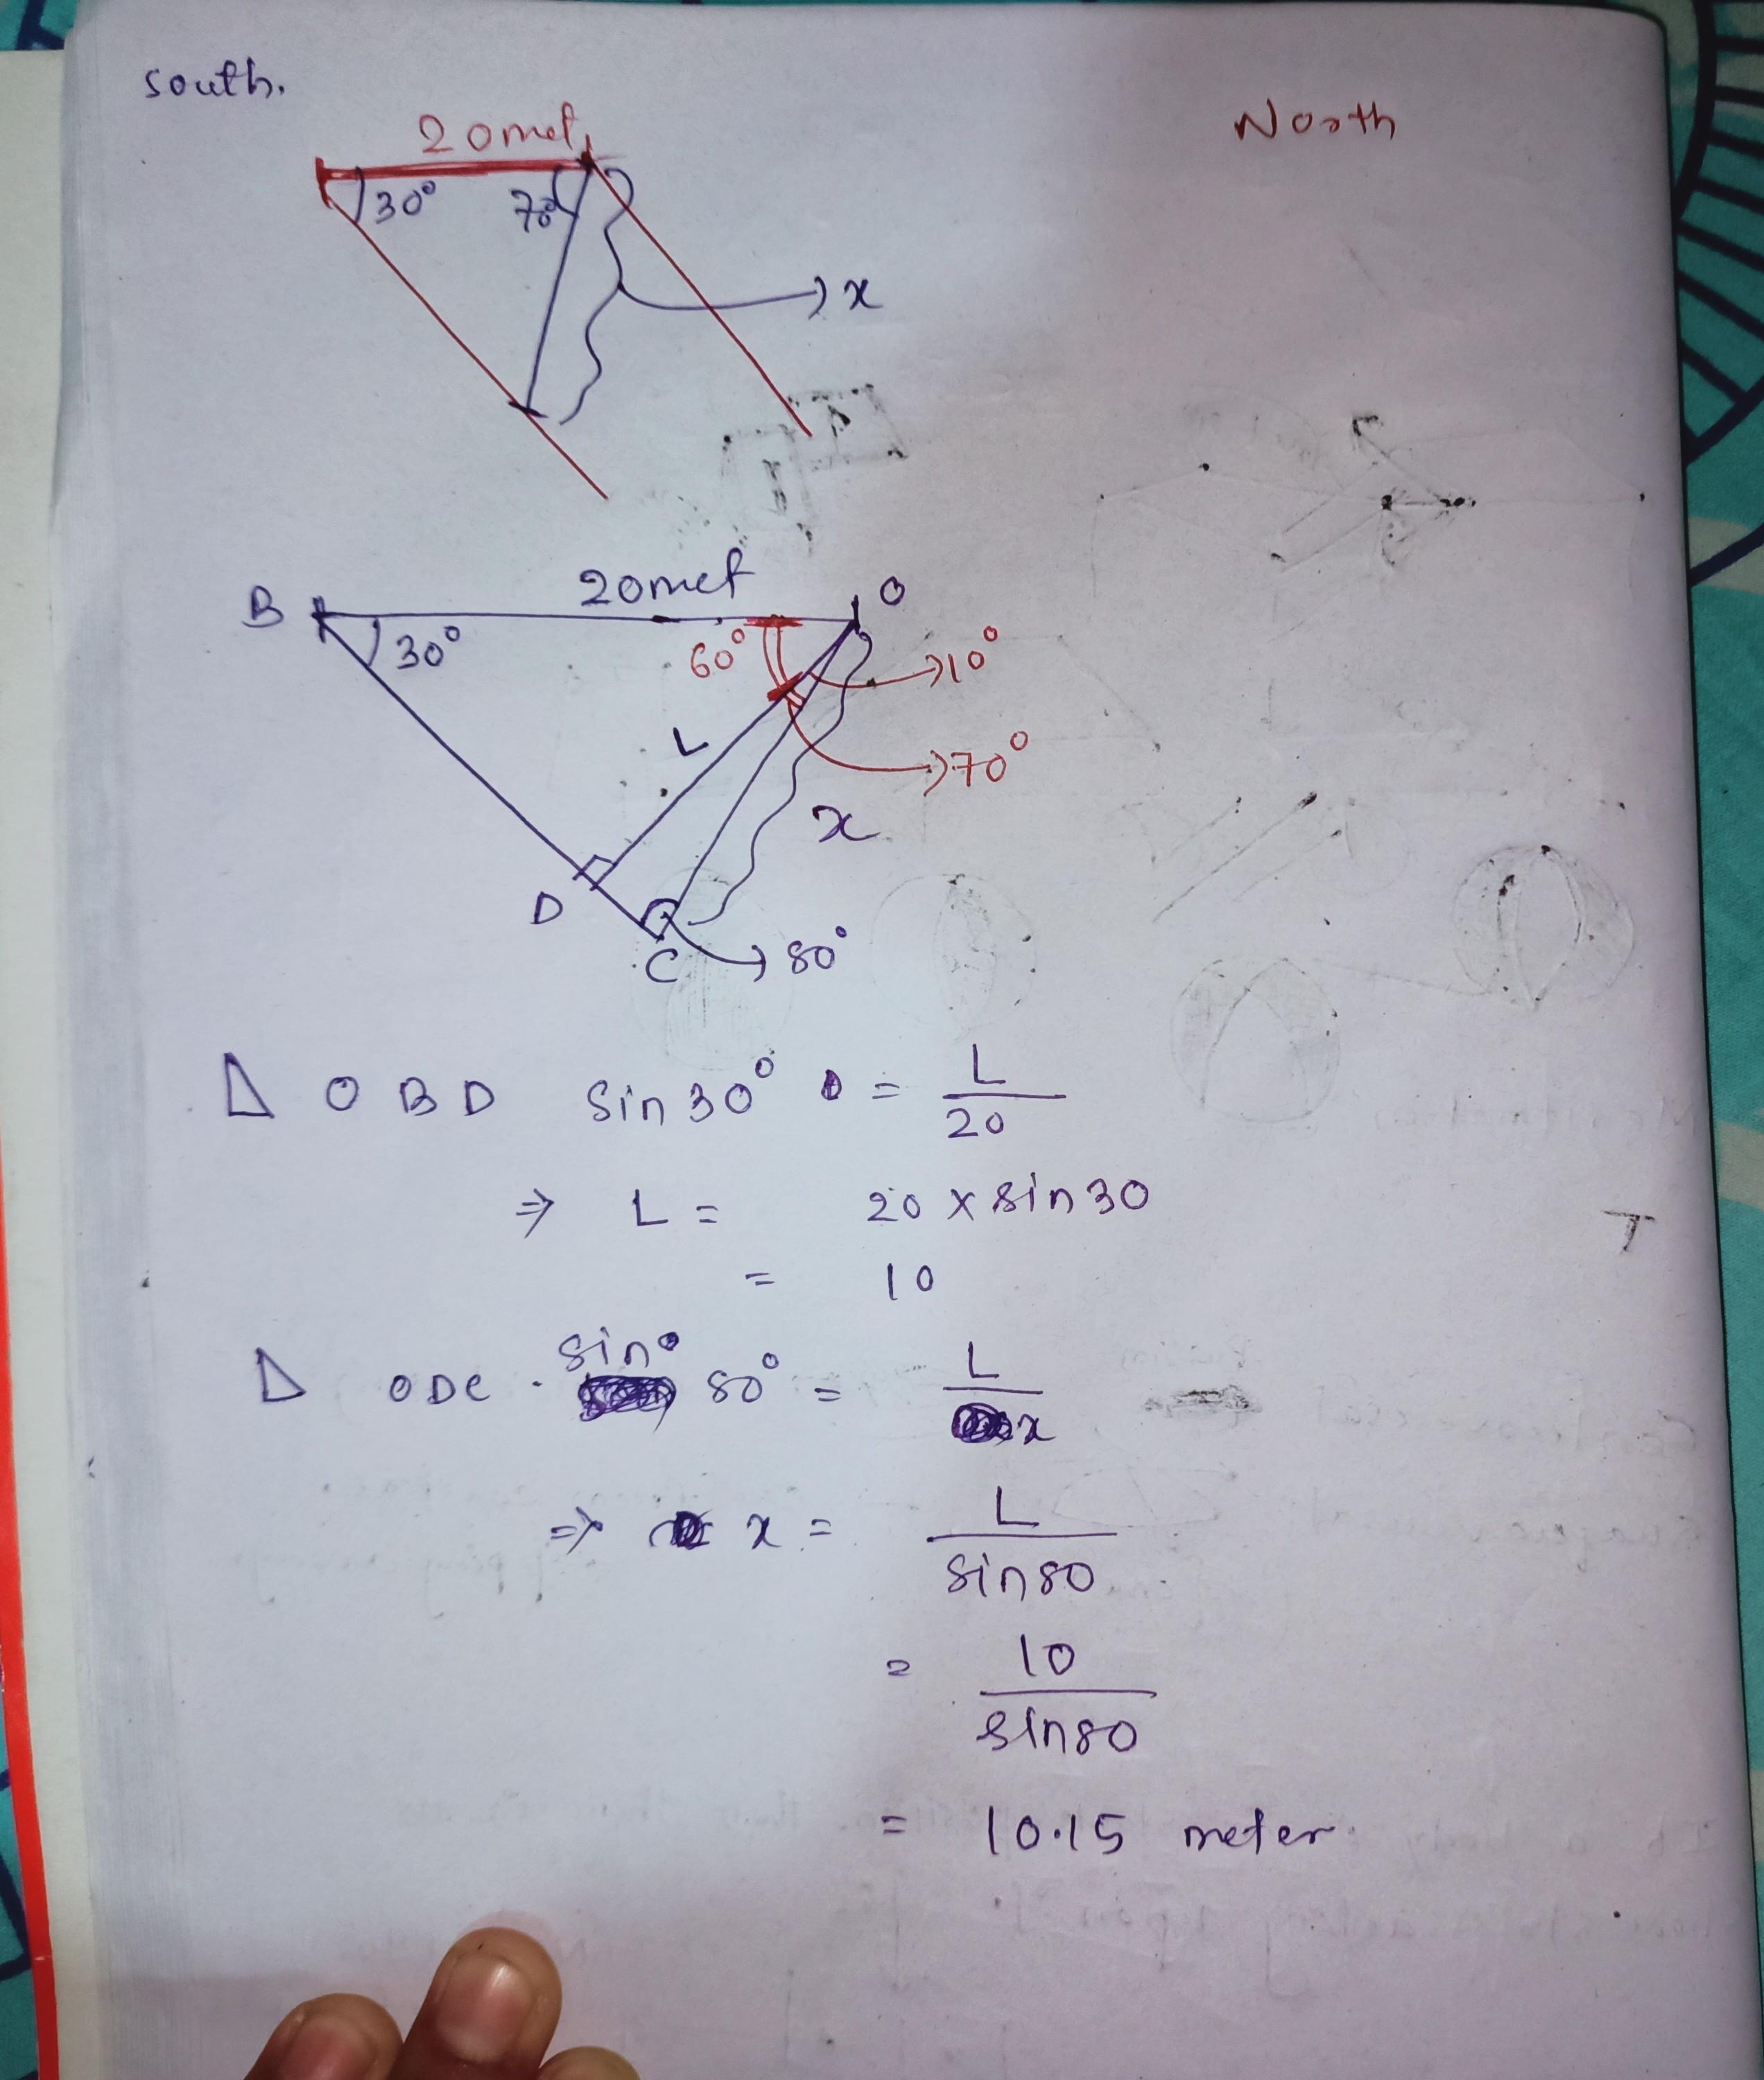 south.
North
20met
30° 70°
x
B 20met O
30° 60° 10°
L 70°
x
D
C 80°
Δ OBD sin 30° = L/20
⇒ L = 20 x sin 30
= 10
Δ ODC . sin 80° = L/x
⇒ x = L/sin 80
= 10/sin 80
= 10.15 meter.